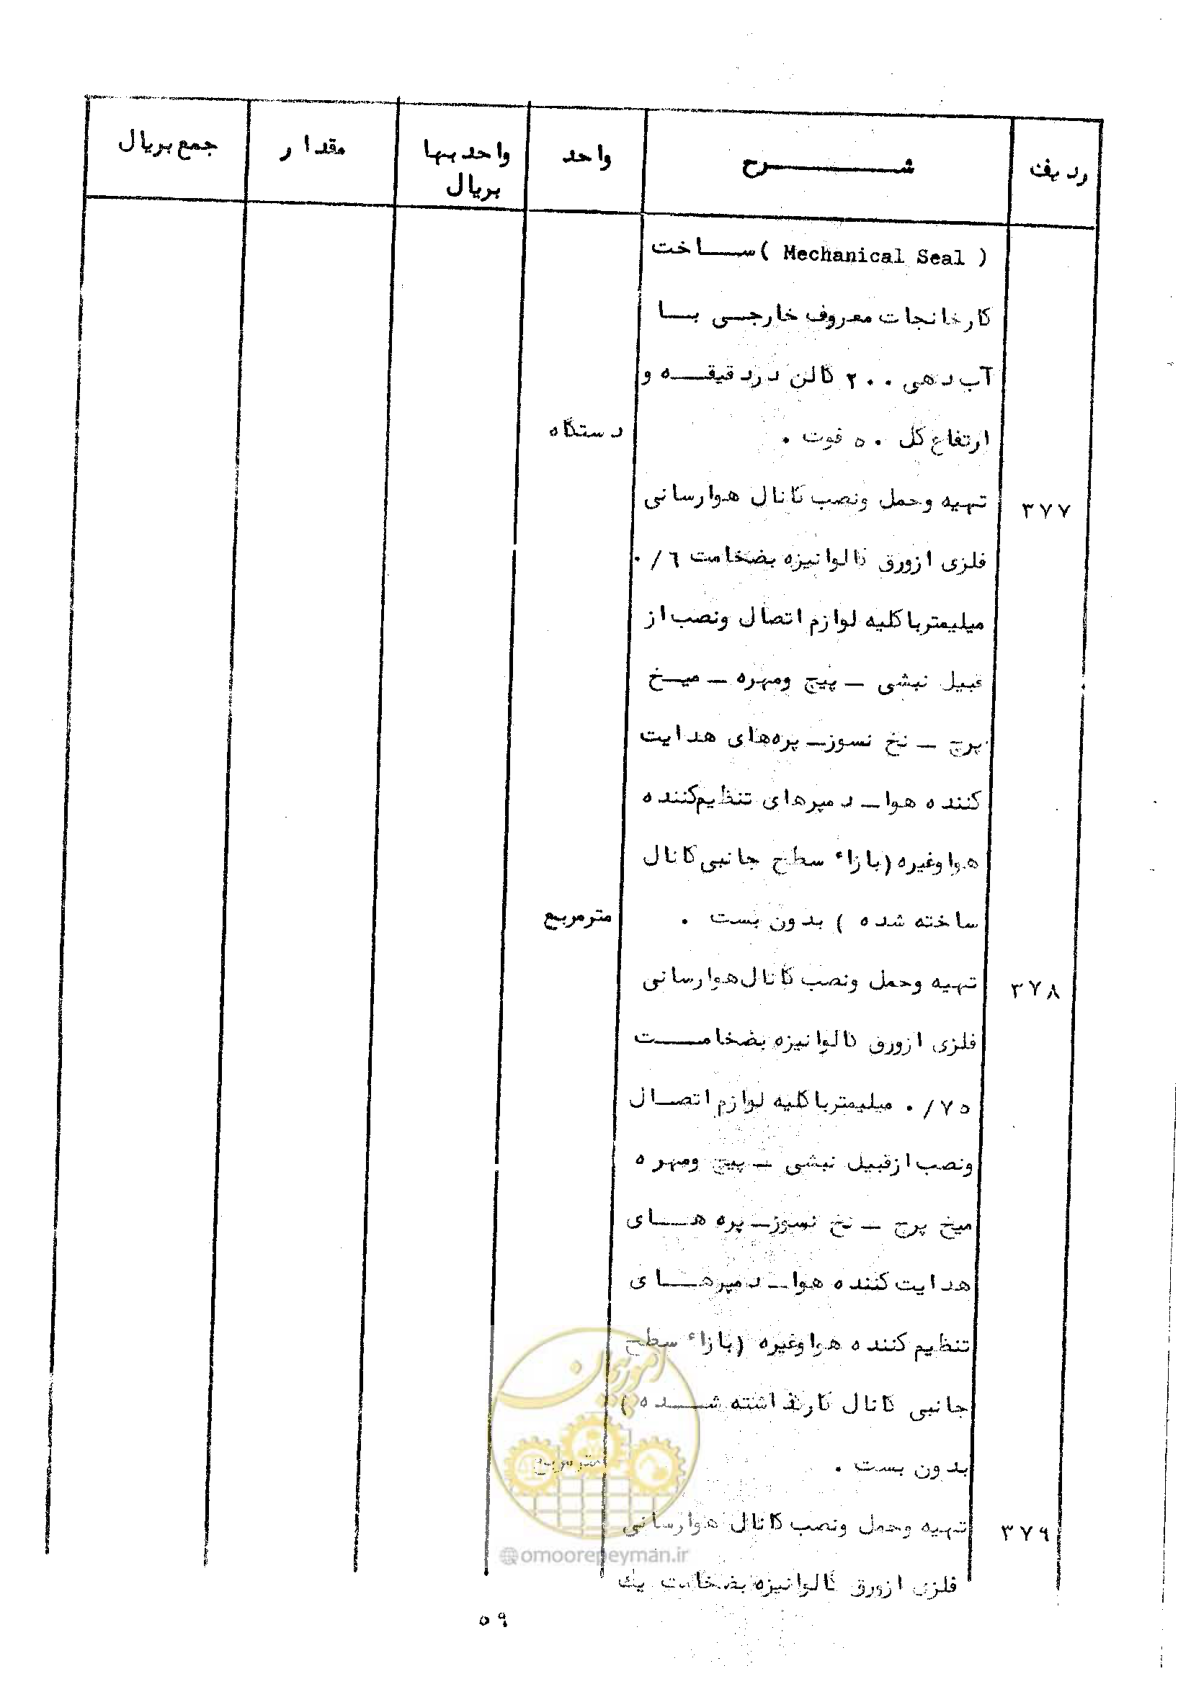 ردیف شرح واحد واحد بها مقدار جمع بریال
بریال
( Mechanical Seal ) ساخت
کارخانجات معروف خارجی با
آب دهی ۲۰۰ گالن در دقیقه و
ارتفاع کل ۵۰ فوت . دستگاه
۳۷۷ تهیه وحمل ونصب کانال هوارسانی
فلزی ازورق گالوانیزه بضخامت ۰/۶
میلیمترباکلیه لوازم اتصال ونصب از
قبیل نبشی ــ پیچ ومهره ــ میخ
پرچ ــ نخ نسوزــ پره‌های هدایت
کننده هوا ــ دمپرهای تنظیم‌کننده
هوا وغیره (بازاء سطح جانبی کانال
ساخته شده ) بدون بست . مترمربع
۳۷۸ تهیه وحمل ونصب کانال هوارسانی
فلزی ازورق گالوانیزه بضخامت
۰/۷۵ میلیمترباکلیه لوازم اتصال
ونصب ازقبیل نبشی ــ پیچ ومهره
میخ پرچ ــ نخ نسوزــ پره های
هدایت کننده هوا ــ دمپرهای
تنظیم کننده هوا وغیره (بازاء سطح
جانبی کانال کارگذاشته شده )
بدون بست . مترمربع
امور پیمان
۳۷۹ تهیه وحمل ونصب کانال هوارسانی
@omoorepeyman.ir
فلزی ازورق گالوانیزه بضخامت یك
۵۹